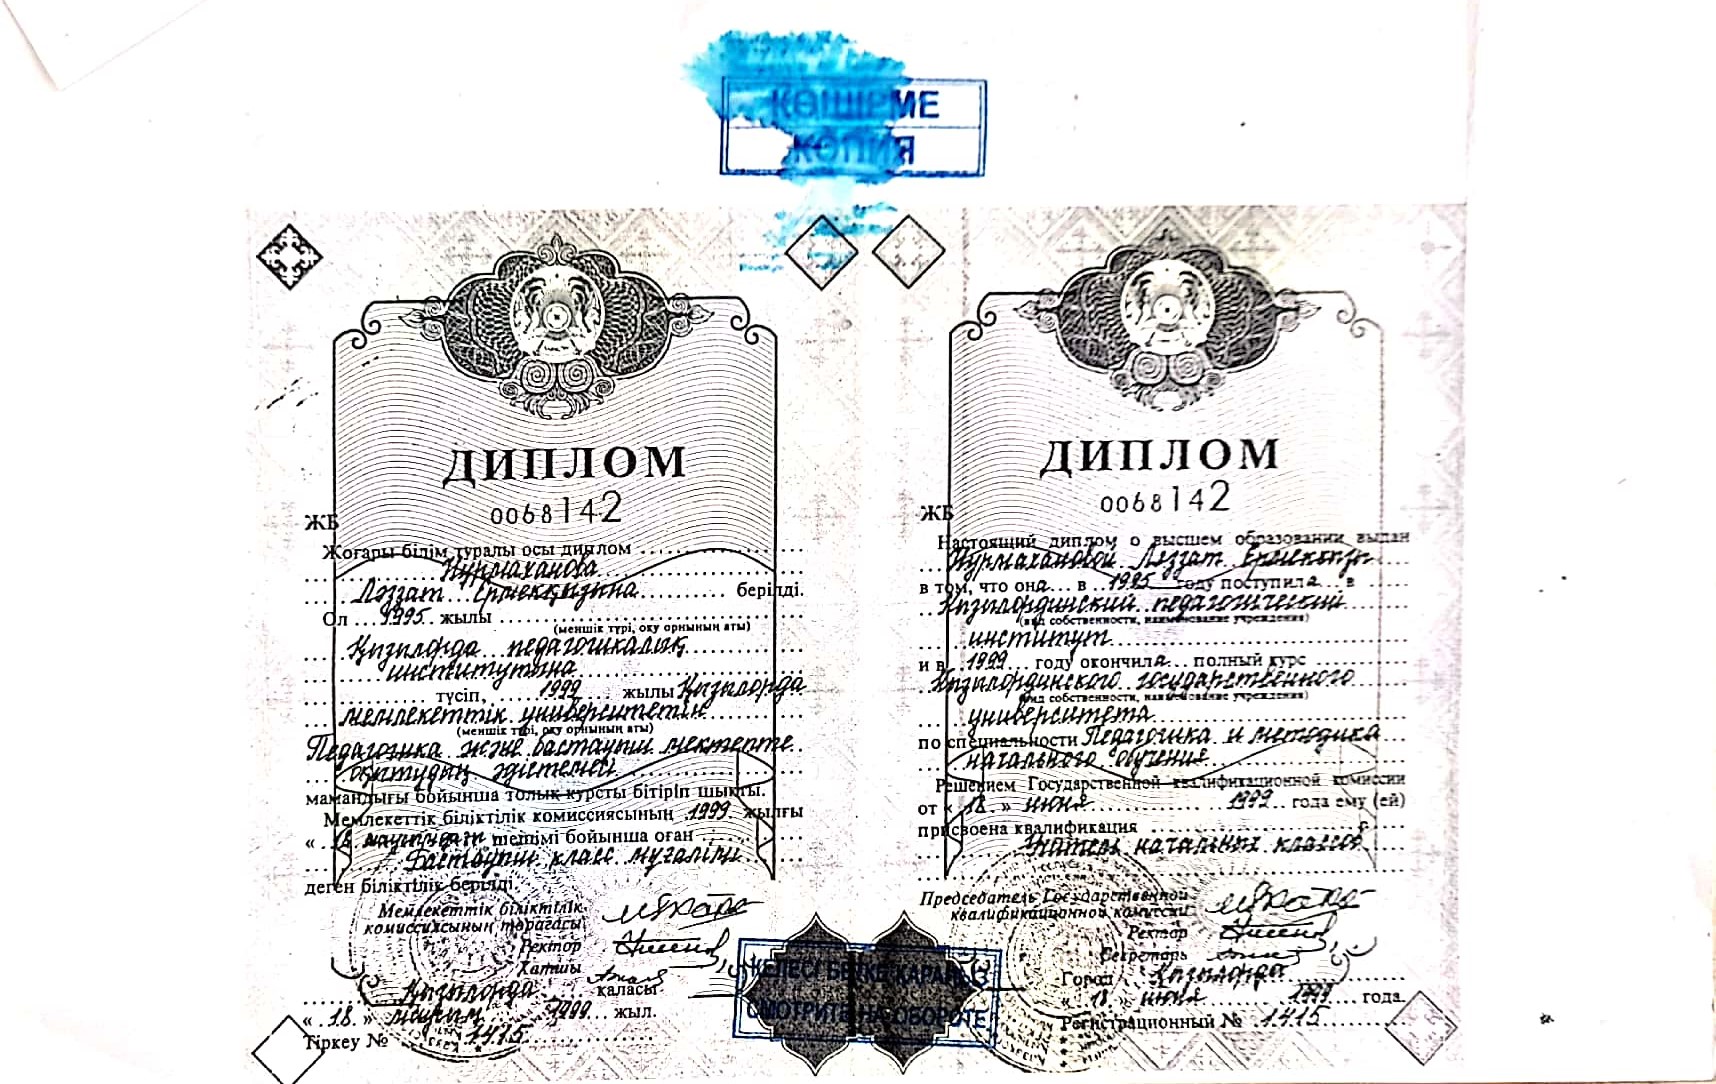 КӨШІРМЕ
КОПИЯ
ДИПЛОМ
ЖБ 0068142
Жоғары білім туралы осы диплом
Нурмаханова
Ләззат Ермекқызына берілді.
Ол 1995 жылы
(меншік түрі, оқу орнының аты)
Қызылорда педагогикалық
институтына
түсіп, 1999 жылы Қызылорда
мемлекеттік университетін
(меншік түрі, оқу орнының аты)
Педагогика және бастауыш мектепте
оқытудың әдістемесі
мамандығы бойынша толық курсты бітіріп шықты.
Мемлекеттік біліктілік комиссиясының 1999 жылғы
« 18 » шешімі бойынша оған
Бастауыш класс мұғалімі
деген біліктілік берілді.
Мемлекеттік біліктілік
комиссиясының төрағасы
Ректор
Хатшы
Қызылорда қаласы
« 18 » маусым 1999 жыл.
Тіркеу № 1415
ДИПЛОМ
ЖБ 0068142
Настоящий диплом о высшем образовании выдан
Нурмахановой Ләззат
в том, что она в 1995 году поступила в
Кызылординский педагогический
(вид собственности, наименование учреждения)
институт
и в 1999 году окончила полный курс
Кызылординского государственного
(вид собственности, наименование учреждения)
университета
по специальности Педагогика и методика
начального обучения
Решением Государственной квалификационной комиссии
от « 18 » июня 1999 года ему (ей)
присвоена квалификация
Учитель начальных классов
Председатель Государственной
квалификационной комиссии
Ректор
Секретарь
Город Кызылорда
« 18 » июня 1999 года
Регистрационный № 1415
КЕЛЕСІ БЕТКЕ ҚАРАҢЫЗ
СМОТРИТЕ НА ОБОРОТЕ